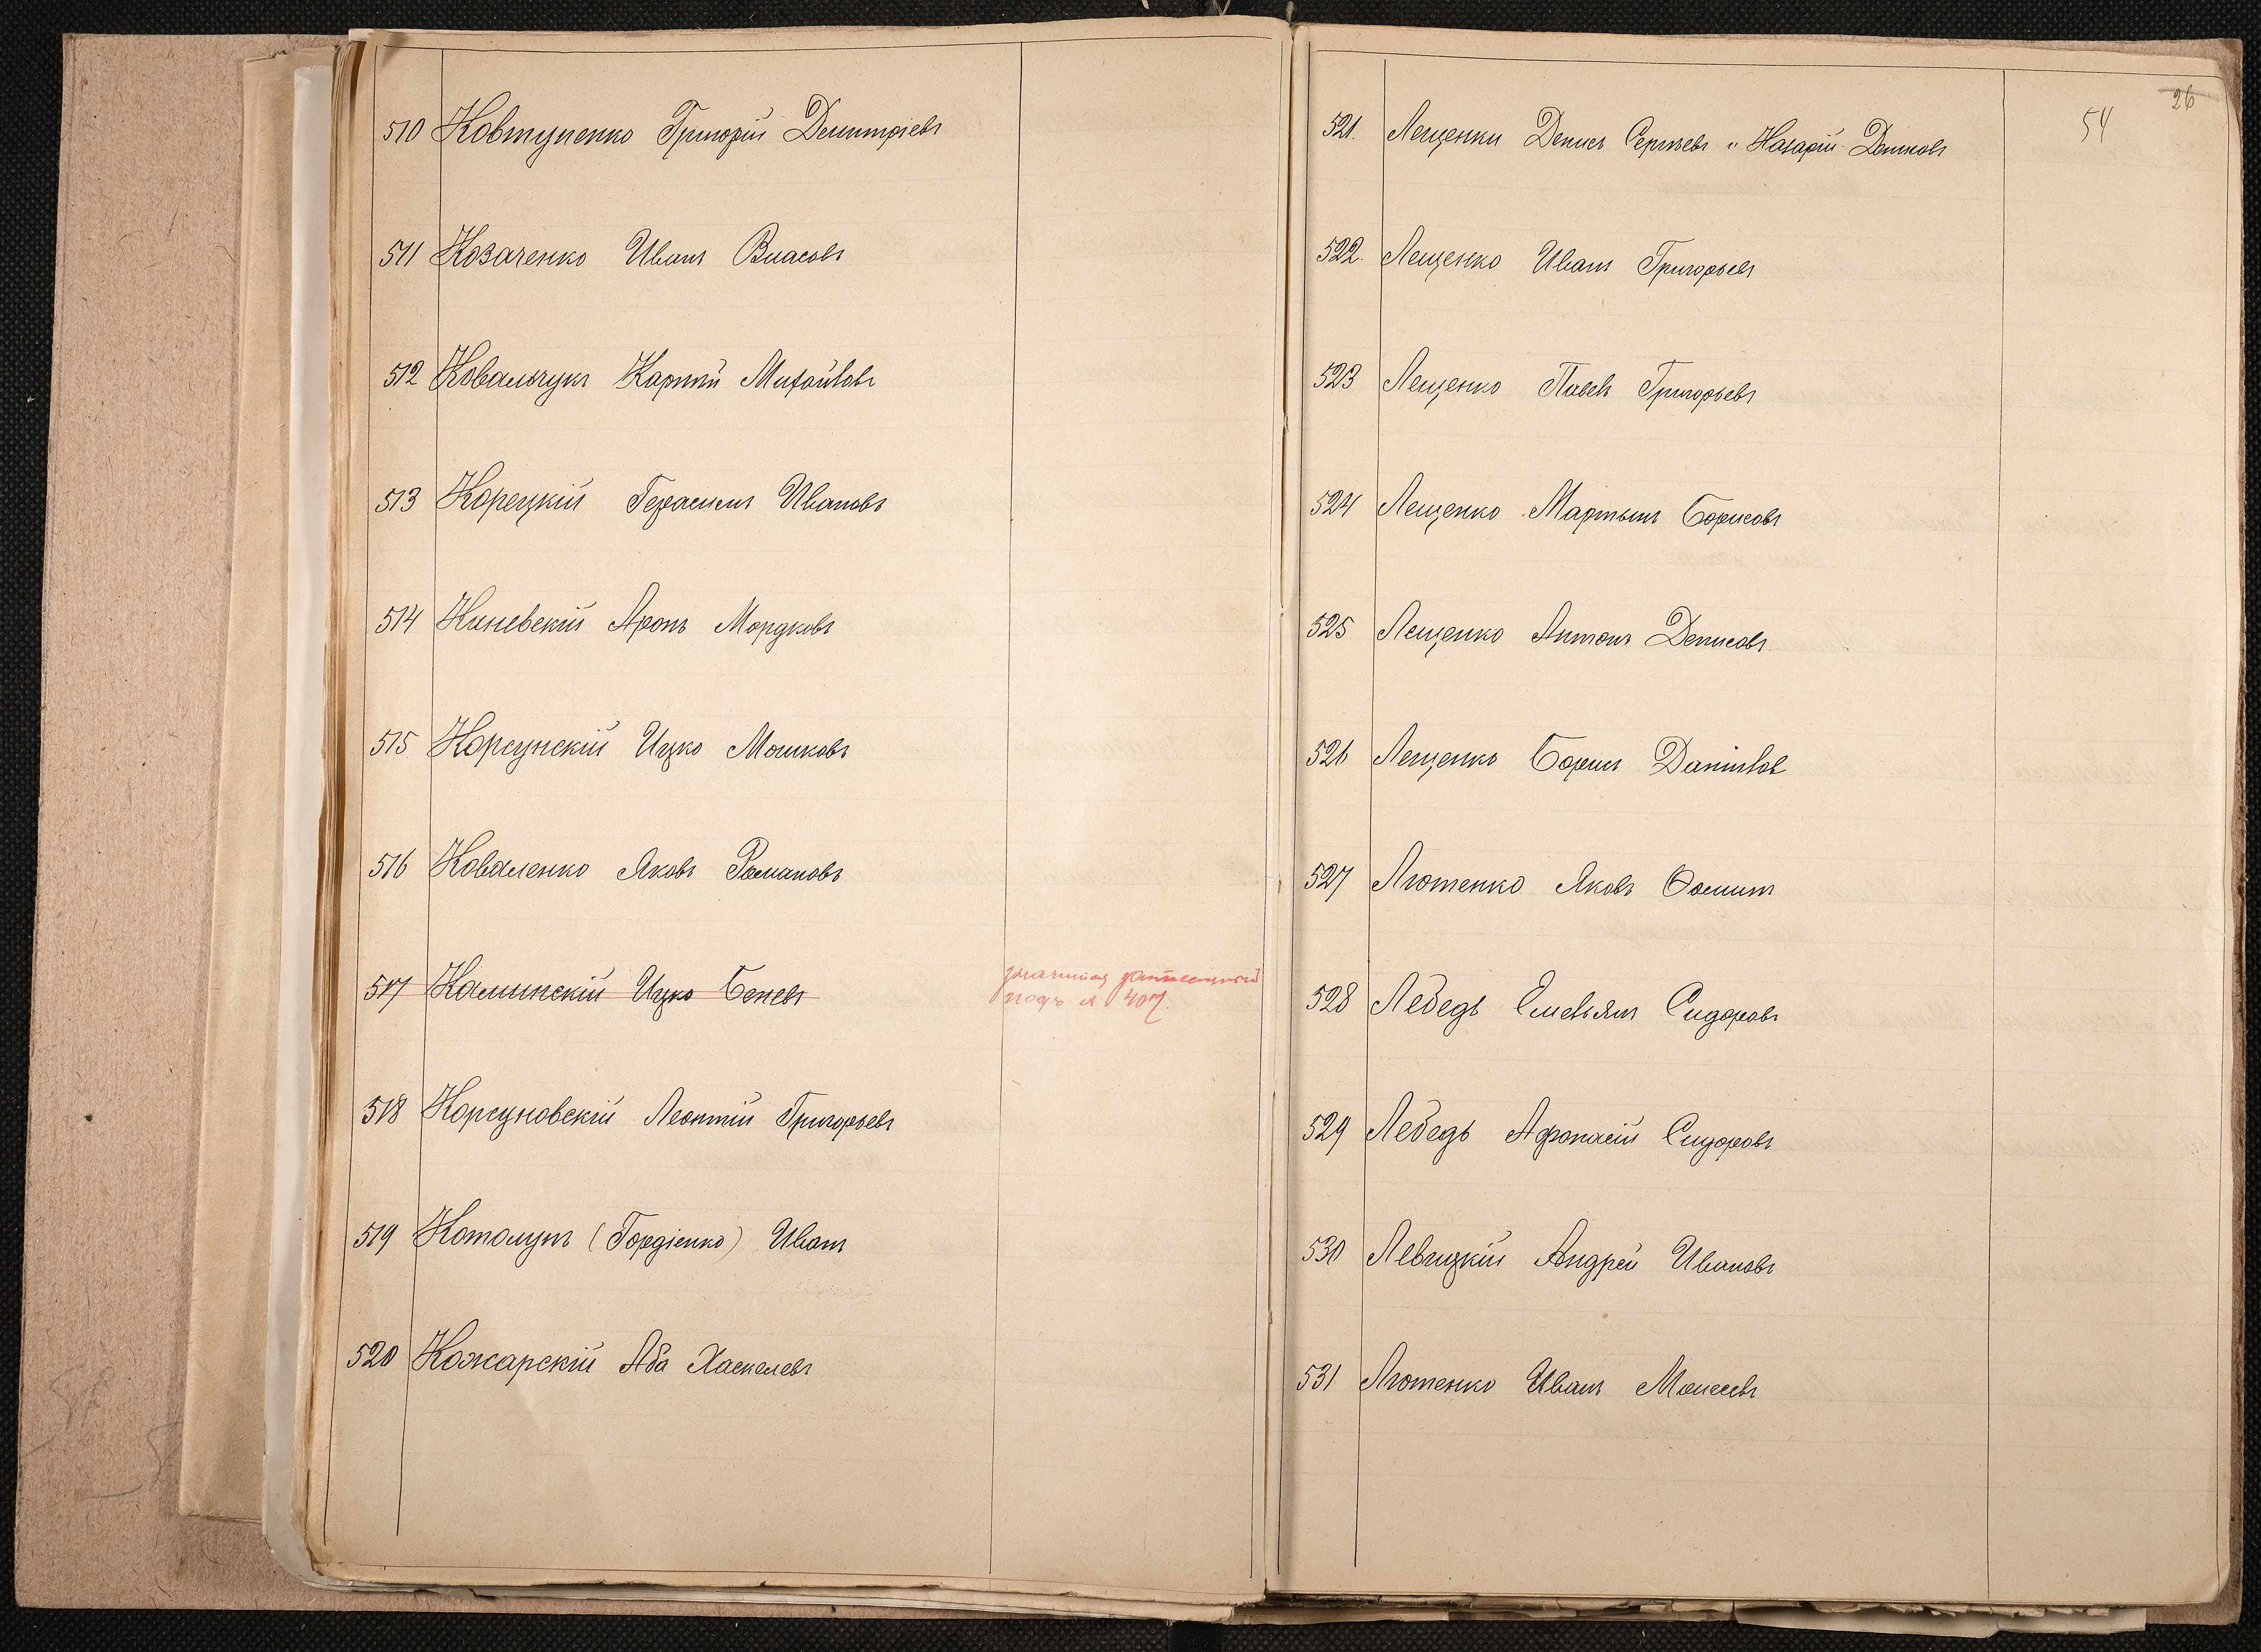 510 Ковтуненко Григорій Димитріевъ
511 Козаченко Иванъ Власовъ
512 Ковальчукъ Карпъ Михайловъ
513 Корецкій Герасимъ Ивановъ
514 Каневскій Аронъ Мордковъ
515 Корсунскій Ицко Мошковъ
516 Коваленко Яковъ Романовъ
517 Калинскій Ицко Беневъ
значится записанный
подъ № 407.
518 Корсуновскій Леонтій Григорьевъ
519 Котолупъ (Гордіенко) Иванъ
520 Кожарскій Аба Хаскелевъ
26
54
521. Лещенки Денисъ Сергѣевъ и Назарій Денисовъ
522. Лещенко Иванъ Григорьевъ
523 Лещенко Павелъ Григорьевъ
524 Лещенко Мартынъ Борисовъ
525 Лещенко Антонъ Денисовъ.
526 Лещенко Борисъ Даниилов
527 Лютенко Яковъ Ѳоминъ
528 Лебедь Емельянъ Сидоровъ
529 Лебедь Афонасій Сидоровъ
530 Левицкій Андрей Ивановъ
531 Лютенко Иванъ Моисеевъ